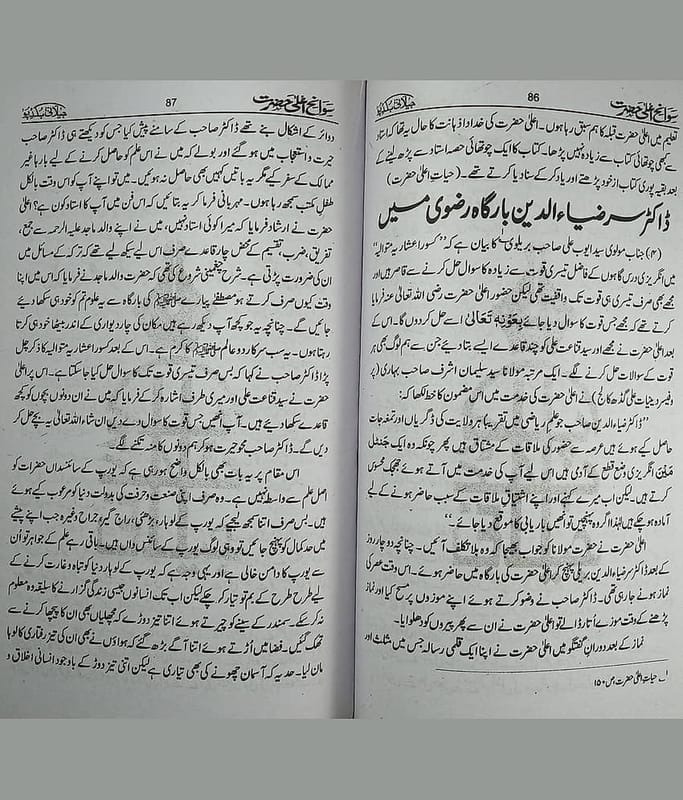 سوانح اعلیٰ حضرت
86
تعلیم میں اعلیٰ حضرت قبلہ کا ہم سبق رہا ہوں۔ اعلیٰ حضرت کی خداداد ذہانت کا حال یہ تھا کہ استاد
سے کبھی چوتھائی کتاب سے زیادہ نہیں پڑھا۔ کتاب کا ایک چوتھائی حصہ استاد سے پڑھ لینے کے
بعد بقیہ پوری کتاب از خود پڑھتے اور یاد کر کے سنا دیا کرتے تھے۔ (حیاتِ اعلیٰ حضرت)
ڈاکٹر سر ضیاء الدین بارگاہ رضوی میں
(۴) جناب مولوی سید ایوب علی صاحب بریلوی کا بیان ہے کہ ’’کسور اعشاریہ متوالیہ‘‘
میں انگریزی درس گاہوں کے فاضل تیسری قوت سے زیادہ کا سوال حل کرنے سے قاصر ہیں اور
مجھے بھی صرف تیسری ہی قوت تک واقفیت تھی لیکن حضور اعلیٰ حضرت رضی اللہ تعالیٰ عنہ فرمایا
کرتے تھے کہ مجھے جس قوت کا سوال دیا جائے بِعَوْنِہٖ تَعَالیٰ اسے حل کر دوں گا۔ اس کے
بعد اعلیٰ حضرت نے مجھے اور سید قناعت علی کو چند قاعدے ایسے بتا دیئے جن سے ہم لوگ بھی ہر
قوت کے سوالات حل کرنے لگے۔ ایک مرتبہ مولانا سید سلیمان اشرف صاحب بہاری (پر
وفیسر دینیات علی گڈھ کالج) نے اعلیٰ حضرت کی خدمت میں اس مضمون کا خط لکھا کہ:
’’ڈاکٹر ضیاء الدین صاحب جو علم ریاضی میں تقریباً ہر ولایت کی ڈگریاں اور تمغہ جات
حاصل کیے ہوئے ہیں عرصہ سے حضور کی ملاقات کے مشتاق ہیں پھر چونکہ وہ ایک جنٹل
مین انگریزی وضع قطع کے آدمی ہیں اس لیے آپ کی خدمت میں آتے ہوئے جھجک محسوس
کرتے ہیں۔ لیکن اب میرے کہنے اور اپنے اشتیاق ملاقات کے سبب حاضر ہونے کے لیے
آمادہ ہو چکے ہیں لہٰذا اگر وہ پہنچیں تو انہیں باریابی کا موقع دیا جائے۔‘‘
اعلیٰ حضرت نے حضرت مولانا کو جواب بھیجا کہ وہ بلا تکلف آئیں۔ چنانچہ دو چار روز
کے بعد ڈاکٹر سر ضیاء الدین بریلی پہنچ کر اعلیٰ حضرت کی بارگاہ میں حاضر ہوئے۔ اس وقت عصر کی
نماز ہونے جا رہی تھی۔ ڈاکٹر صاحب نے وضو کرتے ہوئے اپنے موزوں پر مسح کیا اور نماز
پڑھنے کے وقت موزے اتار ڈالے تو اعلیٰ حضرت نے ان سے پھر پیروں کو دھلوایا۔
نماز کے بعد دوران گفتگو میں اعلیٰ حضرت نے اپنا ایک قلمی رسالہ جس میں مثلث اور
۱۔ حیات اعلیٰ حضرت ص ۱۵۰
سوانح اعلیٰ حضرت
87
دوائر کے اشکال بنے تھے ڈاکٹر صاحب کے سامنے پیش کیا جس کو دیکھتے ہی ڈاکٹر صاحب
حیرت و استعجاب میں ہو گئے اور بولے کہ میں نے اس علم کو حاصل کرنے کے لیے بارہا غیر
ممالک کے سفر کیے مگر یہ باتیں کہیں بھی حاصل نہ ہوئیں۔ میں تو اپنے آپ کو اس وقت بالکل
طفلِ مکتب سمجھ رہا ہوں۔ مہربانی فرما کر یہ بتائیں کہ اس فن میں آپ کا استاد کون ہے؟ اعلیٰ
حضرت نے ارشاد فرمایا کہ میرا کوئی استاد نہیں، میں نے اپنے والد ماجد علیہ الرحمہ سے جمع،
تفریق، ضرب، تقسیم کے محض چار قاعدے صرف اس لیے سیکھ لیے تھے کہ ترکہ کے مسائل میں
ان کی ضرورت پڑتی ہے۔ شرح چغمینی شروع کی تھی کہ حضرت والد ماجد نے فرمایا کہ اس میں اپنا
وقت کیوں صرف کرتے ہو مصطفٰے پیارے ﷺ کی بارگاہ سے یہ علوم تم کو خود ہی سکھا دیئے
جائیں گے۔ چنانچہ یہ جو کچھ آپ دیکھ رہے ہیں، مکان کی چار دیواری کے اندر بیٹھا خود ہی کرتا
رہتا ہوں۔ یہ سب سرکار دو عالم ﷺ کا کرم ہے۔ اس کے بعد کسور اعشاریہ متوالیہ کا ذکر چل
پڑا ڈاکٹر صاحب نے کہا کہ بس صرف تیسری قوت تک کا سوال حل کیا جا سکتا ہے۔ اس پر اعلیٰ
حضرت نے سید قناعت علی اور میری طرف اشارہ کر کے فرمایا کہ میں نے ان دونوں بچوں کو کچھ
قاعدے سکھا دیئے ہیں۔ آپ انھیں جس قوت کا سوال دے دیں ان شاء اللہ تعالیٰ یہ بچے حل کر
دیں گے۔ ڈاکٹر صاحب محو حیرت ہو کر ہم دونوں کا منہ تکنے لگے۔
اس مقام پر یہ بات بھی بالکل واضح ہو رہی ہے کہ یورپ کے سائنسداں حضرات کو
اصل علم سے واسطہ نہیں ہے۔ وہ صرف اپنی صنعت و حرفت کی بدولت دنیا کو مرعوب کیے ہوئے
ہیں۔ بس صرف اتنا سمجھ لیجئے کہ یورپ کے لوہار، بڑھئی، راج گیر، جراح وغیرہ جب اپنے پیشے
میں حدِ کمال کو پہنچ جائیں تو وہی لوگ یورپ کے سائنس داں ہیں۔ باقی رہے علم کے جواہر تو اُن
سے یورپ کا دامن خالی ہے اور یہی وجہ ہے کہ یورپ کے لوہار دنیا کو تباہ و غارت کرنے کے
لیے طرح طرح کے بم تو تیار کر چکے لیکن اب تک انسانوں جیسی زندگی گزارنے کا سلیقہ وہ معلوم
نہ کر سکے۔ سمندر کے سینے کو چیرتے ہوئے اتنا تیز دوڑے کہ مچھلیاں بھی ان کا پیچھا کرنے سے
تھک گئیں۔ فضا میں اُڑتے ہوئے اتنا آگے بڑھ گئے کہ ہواؤں نے بھی ان کی تیز رفتاری کا لوہا
مان لیا۔ حد یہ کہ آسمان چھونے کی بھی تیاری ہے لیکن اتنی تیز دوڑ کے باوجود انسانی اخلاق و